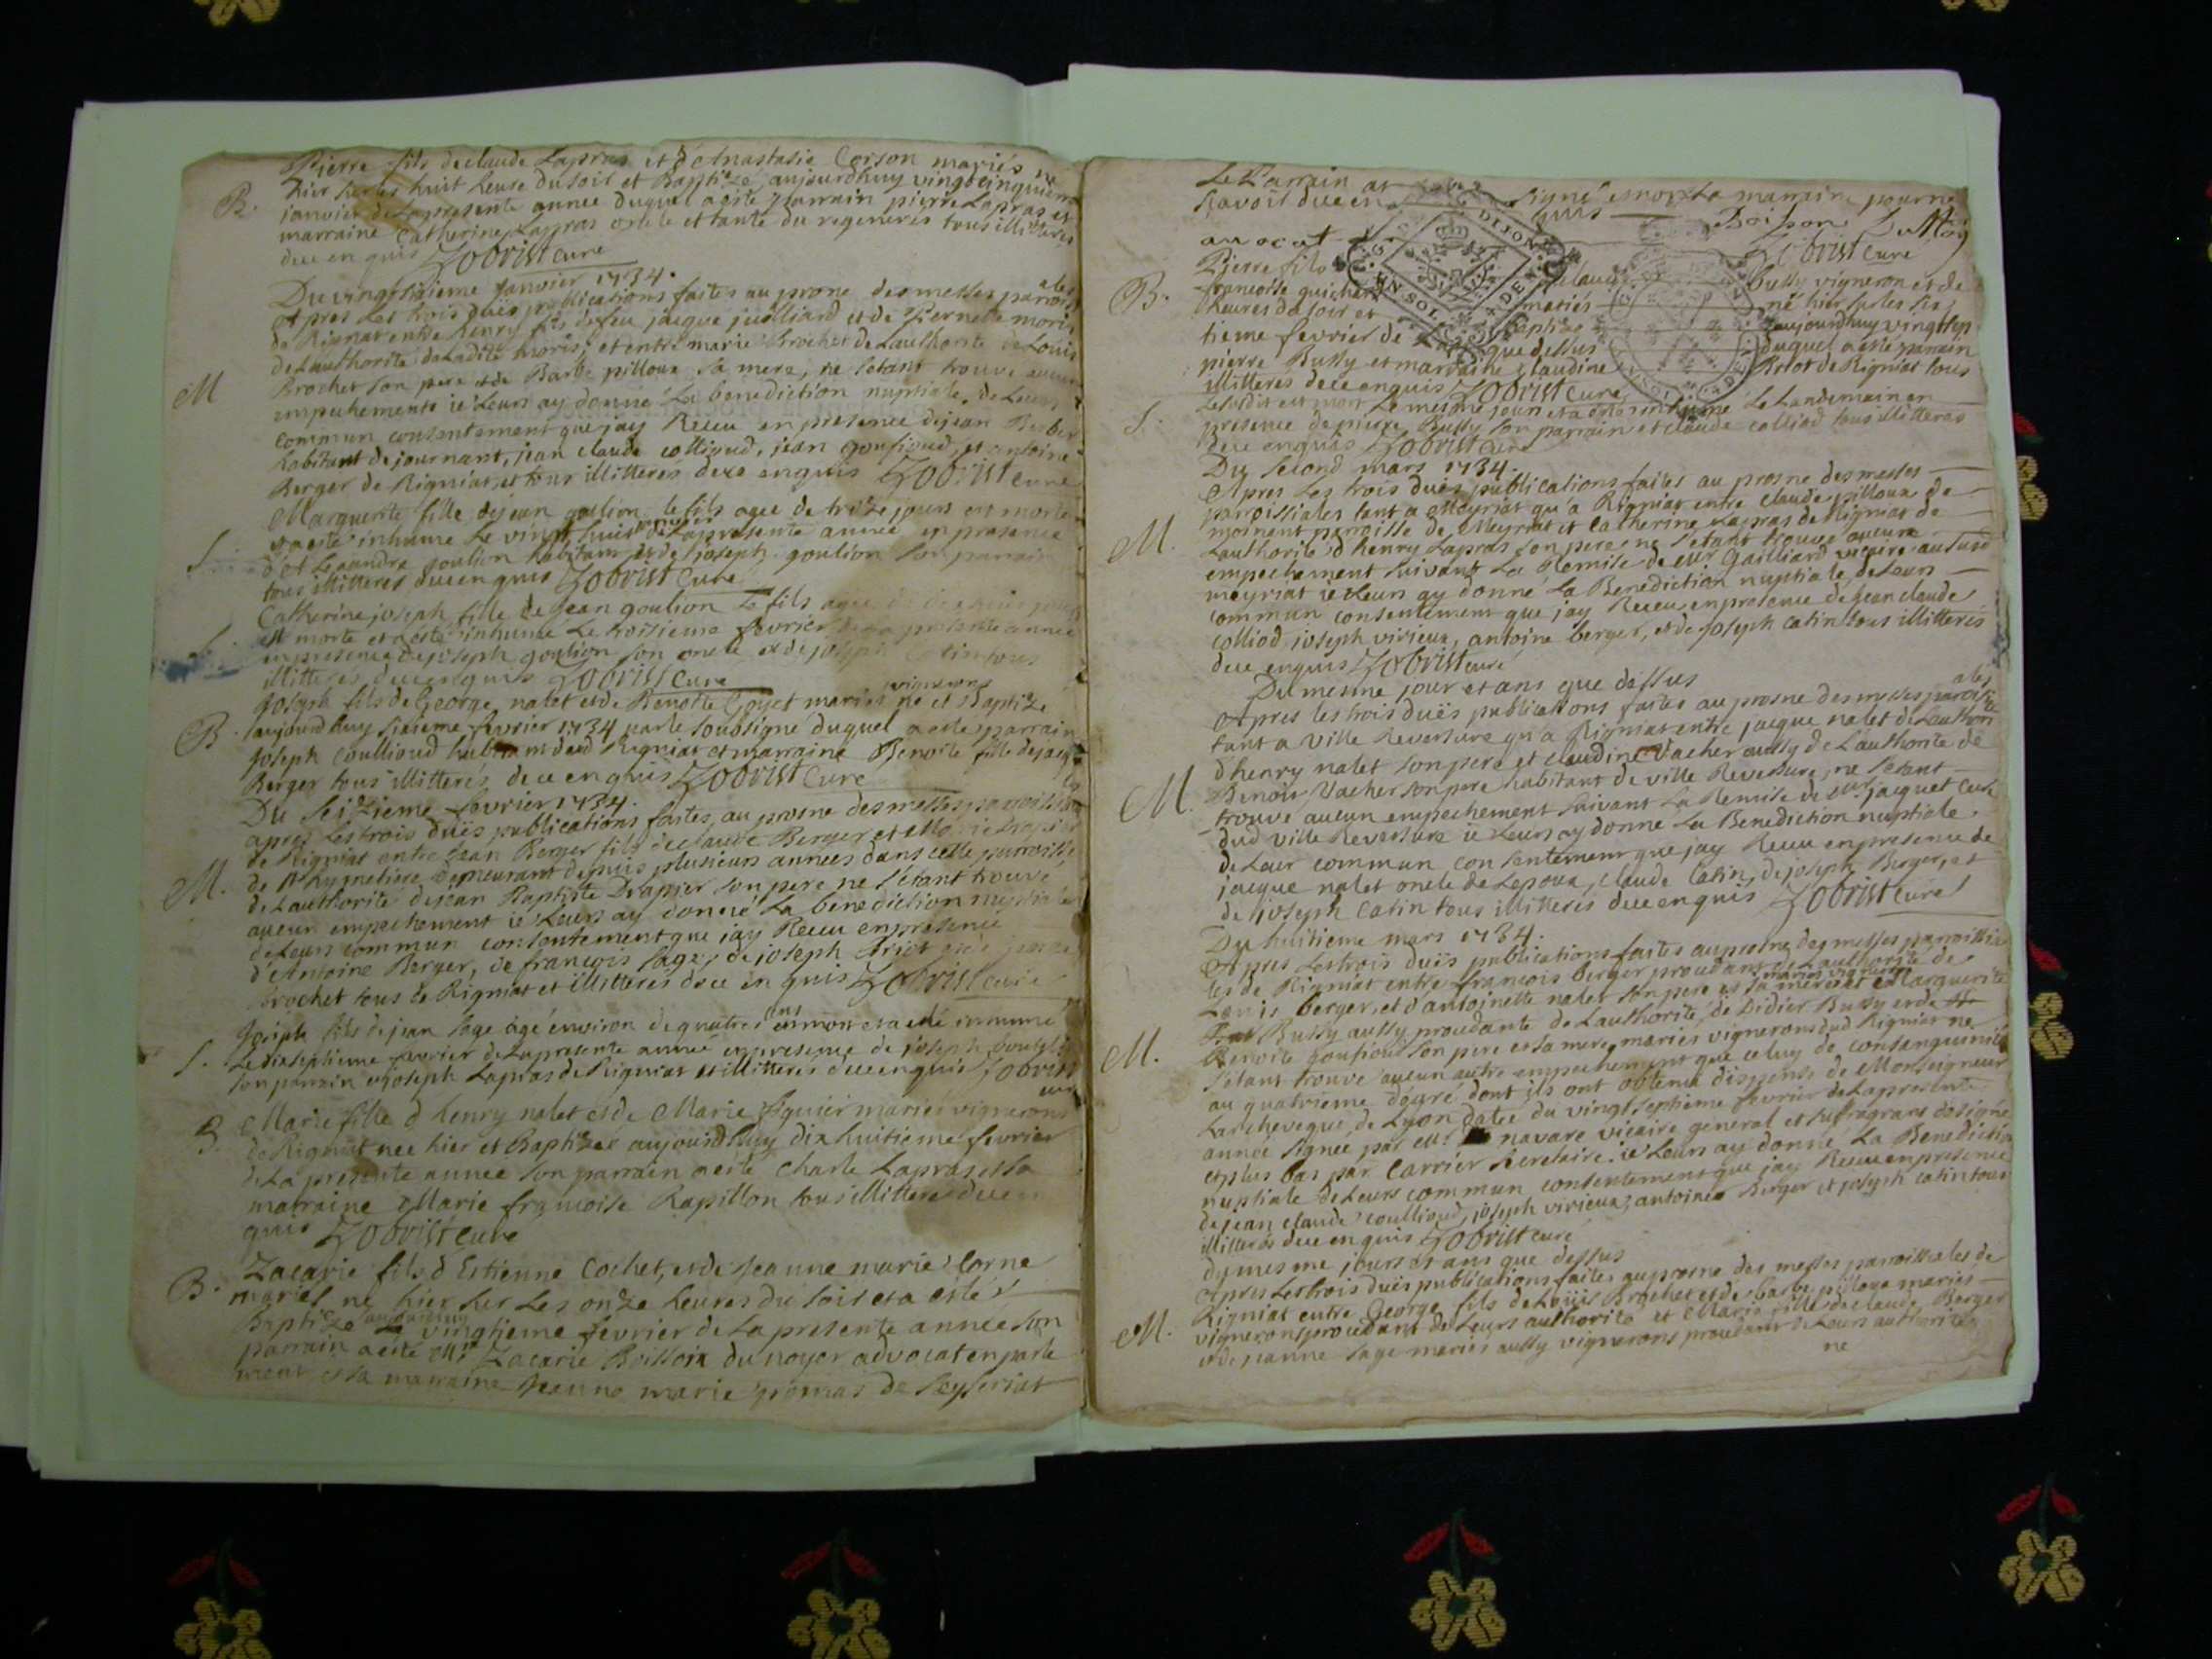 Pierre fils de claude Lapras et d'Anastasie Corson mariés né
hier sur les huit heure du soir et Baptize aujourdhuy vingtcinquieme
B. janvier de la presente année duquel a esté parrain pierre Lapras et
marraine Catherine Lapras oncle et tante du regeneres tous illitteres
de ce enquis Zobrist curé
Du vingtsixieme janvier 1734.
Apres les trois duës publications faites au prone des messes paroissiales
de Rignat entre henry fils de feu jacque juilliard et de Pernette moris
de Lauthorité de Ladite moris, et entre marie Brochet de Lauthorité de Louis
M Brochet son pere et de Barbe pilloux sa mere, ne setant trouvé aucun
empechements ie Leurs ay donné La benediction nuptiale de Leurs
commun consentement que jay Receu en presence de jean
habitant de journant, jean claude collioud, jean goufioud, et antoine
Berger de Rigniat, et tous illitteres de ce enquis Zobrist curé
Marguerite fille de jean goulion le fils agee de treize jours est morte
et a esté inhumé Le vingt huit janvier de Lapresente année en presence
S. d'Alexandre goulion habitant et de joseph goulion son parrain
tous illitteres de ce enquis Zobrist curé
Catherine joseph fille de jean goulion Le fils agee
S. est morte et a esté inhumé Le troisieme fevrier de la presente année
en presence de joseph goulion son oncle et de joseph Catin tous
illitteres de ce enquis Zobrist curé
Joseph fils de George nalet et de Benoitte Goyet mariés vignerons né et Baptizé
B. aujourdhuy sixieme fevrier 1734 par le soubsigné duquel a esté parrain
Joseph Coullioud habitant dud Rigniat et marraine Benoite fille de jacque
Berger tous illitteres de ce enquis Zobrist Curé
Du seizieme fevrier 1734.
apres les trois duës publications faites, au prosne des messes paroissiales
de Rigniat entre jean Berger fils de claude Berger et Marie Drapier
M. de demeurant depuis plusieurs annees dans cette paroisse
de Lauthorité de jean Baptiste Drapier son pere ne s'étant trouvé
aucun empechement ie Leurs ay donné La benediction nuptiale
de Leurs commun consentement que jay Receu en presence
d'Antoine Berger, de françois sage, de joseph
brochet tous de Rigniat et illitteres de ce enquis Zobrist curé
Joseph fils de jean sage agé environ de quatres ans est mort et a esté inhumé
S. Le dixseptieme fevrier de Lapresente année en presence de joseph
son parrain et joseph Lapras de Rigniat et illitteres de ce enquis Zobrist
curé
Marie fille d henry nalet et de Marie figuier mariés vignerons
B. de Rigniat née hier et Baptizee aujourdhuy dixhuitieme fevrier
de La presente annee son parrain a esté Charle Lapras et sa
marraine Marie françoise Rapillon tous illitteres de ce en
quis Zobrist curé
Zacarie fils d'Estienne Cochet, et de jeanne marie Corne
B. mariés né hier sur Les onze heures du soir et a esté
Baptizé aujourdhuy vingtieme fevrier de La presente annee son
parrain a esté Mr Zacarie Boisson du noyer advocat en parle
ment et sa marraine Jeanne marie promas de Ceyseriat
Le Parrain signé et non La marraine pour ne
scavoir de ce en quis Boisson Dunoy
avocat Zobrist Curé
Pierre fils claude bussy vigneron et de
B. françoise guichard mariés né hier sur les six
heures du soir et Baptizé aujourdhuy vingtsep
tieme fevrier de que dessus duquel a esté parrain
pierre Bussy et marraine claudine Brot de Rigniat tous
illitteres de ce enquis Zobrist curé
S. Le susdit est mort Le mesme jour et a esté inhumé Le Landemain en
presence de pierre Bussy son parrain et claude colliod tous illitteres
de ce enquis Zobrist curé
Du second mars 1734.
Apres Les trois duës publications faites au prosne des messes
paroissiales tant a Meyriat qu'a Rigniat entre claude pilloux de
M. moinent parroisse de Meyriat et Catherine Lapras de Rigniat de
Lauthorité d henry Lapras son pere ne s'etant trouvé aucun
empechement suivant La Remise de Mr. Gailliard vicaire au susd
meyriat ie Leurs ay donné La Benediction nuptiale de Leurs
commun consentement que jay Receu en presence de jean claude
colliod, joseph virieux, antoine berger, et de joseph catin tous illitterés
de ce enquis Zobrist curé
Du mesme jour et ans que dessus
Apres les trois duës publications faites au prosne des messes paroissiales
tant a Ville Reversure qu'a Rigniat entre jacque nalet de Lauthorité
d'henry nalet son pere et claudine Vacher aussy de Lauthorité de
M. Benoit Vacher son pere habitant de ville Reversure, ne s'etant
trouvé aucun empechement suivant La Remise de Mr. jacquet Curé
dud ville Reversure ie Leurs ay donné La Benediction nuptiale
de Leur commun consentement que jay Receu en presence de
jacque nalet oncle de Lepoux, claude Catin, de joseph Berger, et
de joseph catin tous illitterés de ce enquis Zobrist Curé
Du huitieme mars 1734.
Apres Les trois duës publications faites au prosne des messes parroissia
les de Rigniat entre françois berger procedant de Lauthorité de
Louis berger, et d'antoinette nalet son pere et sa mere mariés vignerons et Marguerite
Bussy aussy procedante de Lauthorité, de Didier Bussy et de
M. Benoite goufioud son pere et sa mere, mariés vignerons dud Rigniat ne
s'étant trouvé aucun autre empechement que celuy de consanguinité
au quatrieme degré dont ils ont obtenu dispense de Monseigneur
Larcheveque de Lyon datée du vingtseptieme fevrier de Lapresente
année signée par Mr. navare vicaire general et suffragrant designé
et plus bas par Carrier secretaire. ie Leurs ay donné La Benedictio
nuptiale de Leurs commun consentement que jay Receu en presence
de jean claude coullioud, joseph virieux, antoine Berger et joseph catin tous
illitterés de ce enquis Zobrist curé
du mesme jours et ans que dessus
Apres Les trois duës publications faites au prosne des messes parroissiales de
Rigniat entre George fils de Louis Brochet et de barbe pilloux mariés
M. vignerons procedant de Leurs authorité et Marie fille de claude Berger
et de jeanne sage mariés aussy vignerons procedant de Leurs authorité
ne